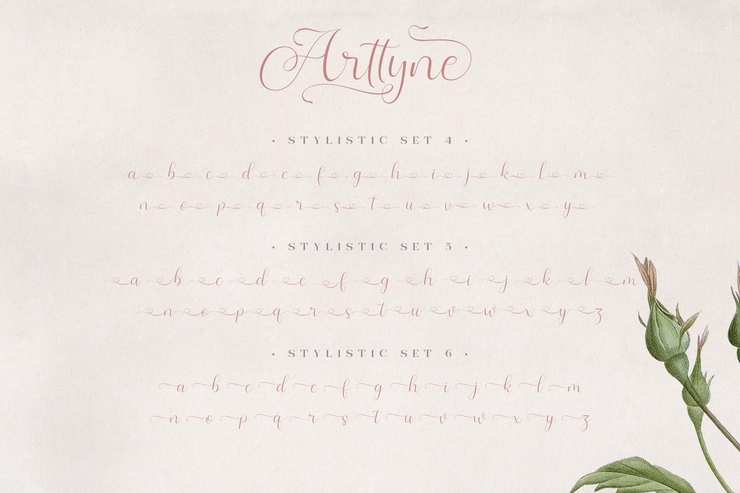 Arttyne
· STYLISTIC SET 4 ·
a b c d e f g h i j k l m
n o p q r s t u v w x y
· STYLISTIC SET 5 ·
a b c d e f g h i j k l m
n o p q r s t u v w x y z
· STYLISTIC SET 6 ·
a b c d e f g h i j k l m
n o p q r s t u v w x y z